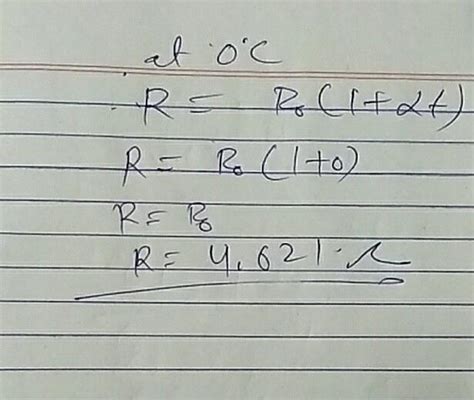 at 0°C
R = R₀(1+αt)
R = R₀(1+0)
R = R₀
R = 4.621 Ω